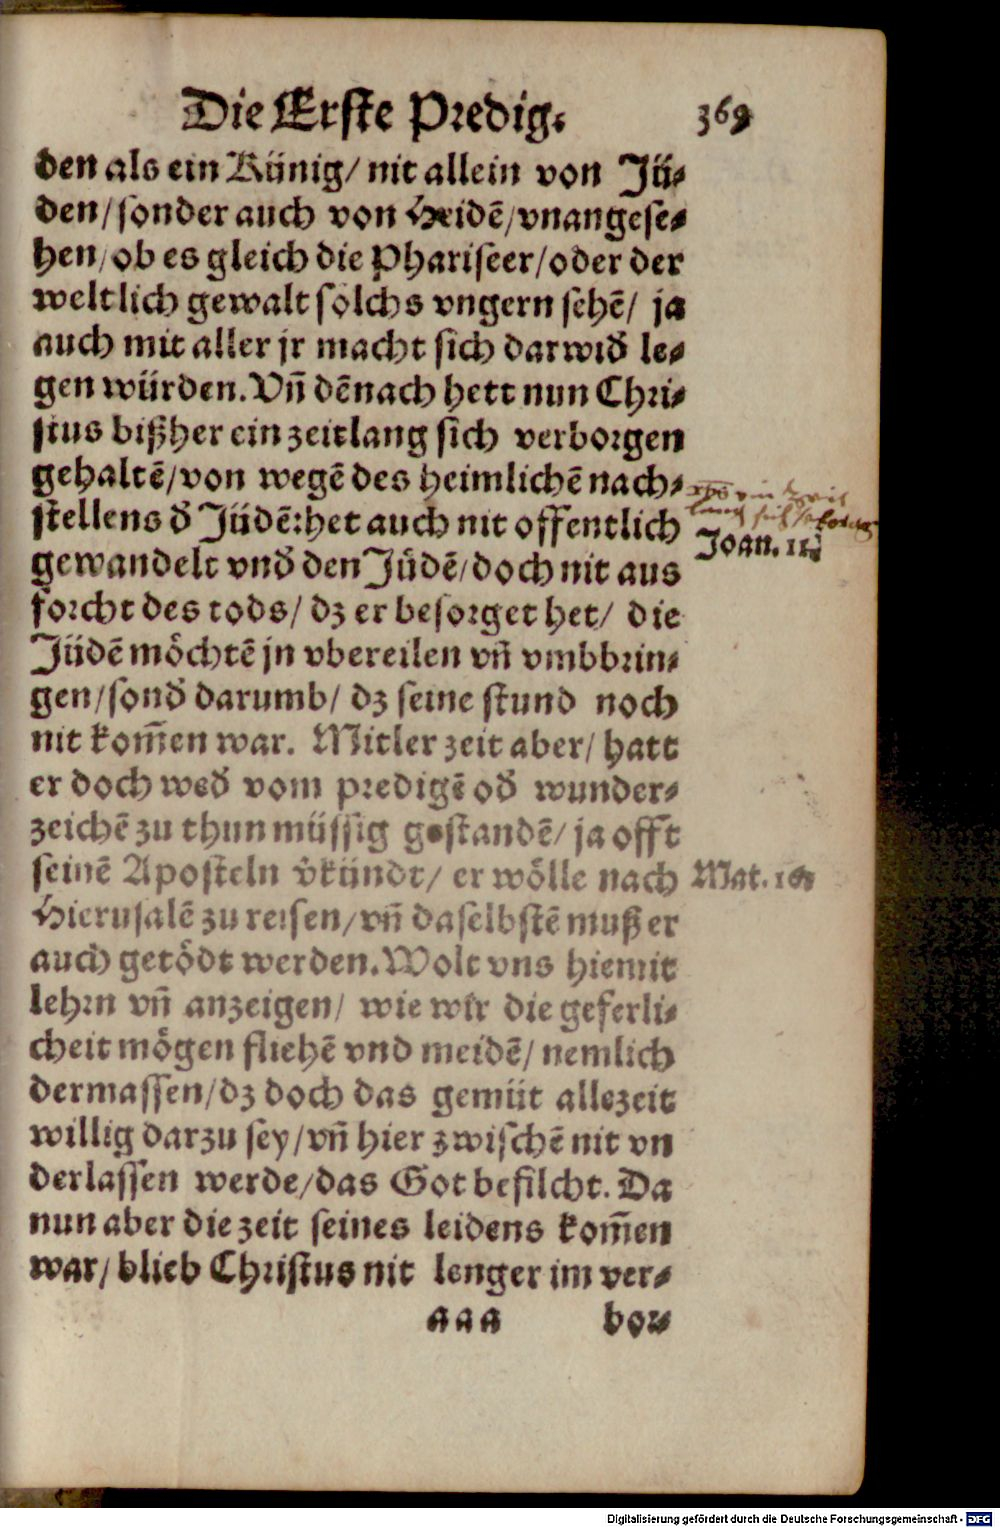 Die Erste Predig. 369
den als ein Künig/ nit allein von Jü⸗
den/ sonder auch von Heidē/ vnangese⸗
hen/ ob es gleich die Phariseer/ oder der
weltlich gewalt solchs vngern sehē/ ja
auch mit aller jr macht sich darwid̄ le⸗
gen würden. Vn̄ dēnach hett nun Chri⸗
stus bißher ein zeitlang sich verborgen
gehaltē/ von wegē des heimlichē nach⸗
stellens d̄ Jüdē: het auch nit offentlich
gewandelt vnd̄ den Jüdē/ doch nit aus
forcht des tods/ dz er besorget het/ die
Jüdē möchtē jn vbereilen vn̄ vmbbrin⸗
gen/ sond̄ darumb/ dz seine stund noch
nit kom̄en war. Mitler zeit aber/ hatt
er doch wed̄ vom predigē od̄ wunder⸗
zeichē zu thun müssig gestandē/ ja offt
seinē Aposteln v̄kündt/ er wölle nach
Hierusalē zu reisen/ vn̄ daselbstē muß er
auch getödt werden. Wolt vns hiemit
lehrn vn̄ anzeigen/ wie wir die geferli⸗
cheit mögen fliehē vnd meidē/ nemlich
dermassen/ dz doch das gemüt allezeit
willig darzu sey/ vn̄ hier zwischē nit vn
derlassen werde/ das Got befilcht. Da
nun aber die zeit seines leidens kom̄en
war/ blieb Christus nit lenger im ver⸗
aaa bor⸗
Joan. 11
Mat. 16
Digitalisierung gefördert durch die Deutsche Forschungsgemeinschaft - DFG